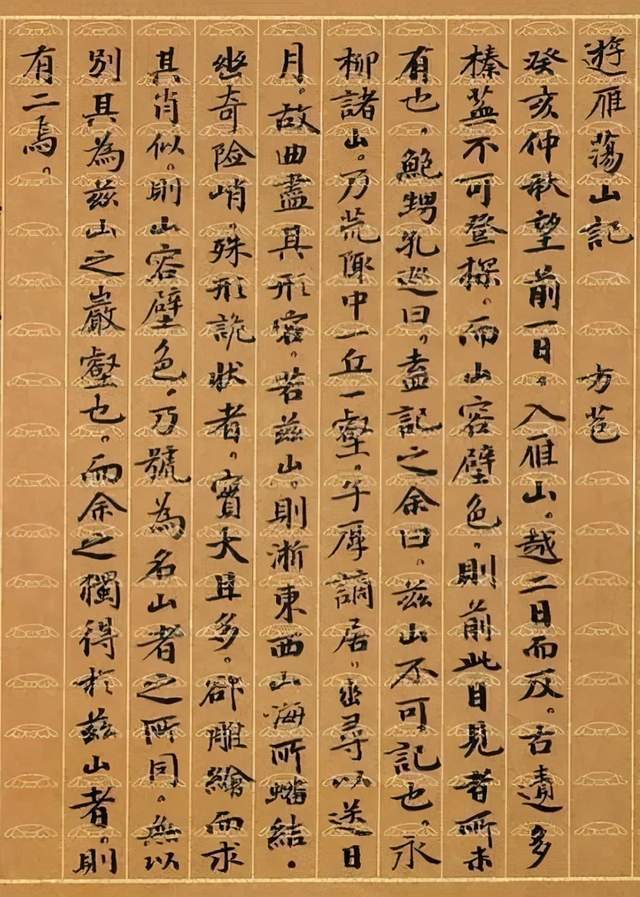 遊雁蕩山記 方苞
癸亥仲秋望前一日。入雁山。越二日而反。古蹟多
榛蕪不可登探。而山容壁色。則前此目見者所未
有也，鮑甥孔巡曰。盍記之余曰。茲山不可記也。永
柳諸山。乃荒陬中一丘一壑。子厚謫居。幽尋以送日
月。故曲盡其形容。若茲山。則浙東西山海所蟠結。
幽奇险峭。殊形詭狀者。實大且多。欲雕繪而求
其肖似。則山容壁色。乃號為名山者之所同。無以
別其為茲山之巖壑也。而余之獨得於茲山者。則
有二焉。